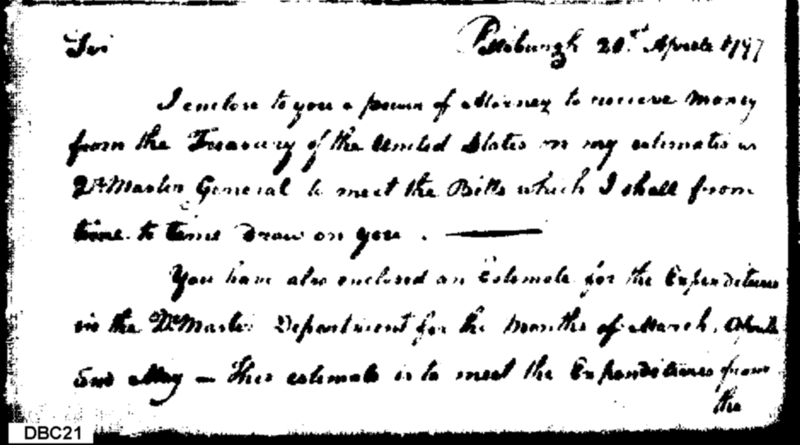 Sir Pittsburgh 20th Aprile 1797
I enclose to you a power of Attorney to receive money
from the Treasury of the United States on my estimates as
Qr Master General to meet the Bills which I shall from
time to time Draw on you.
You have also enclosed an Estimate for the Expenditures
in the Qr Master Department for the Months of March, Aprile
and May — This estimate is to meet the Expenditures from
the
DBC21